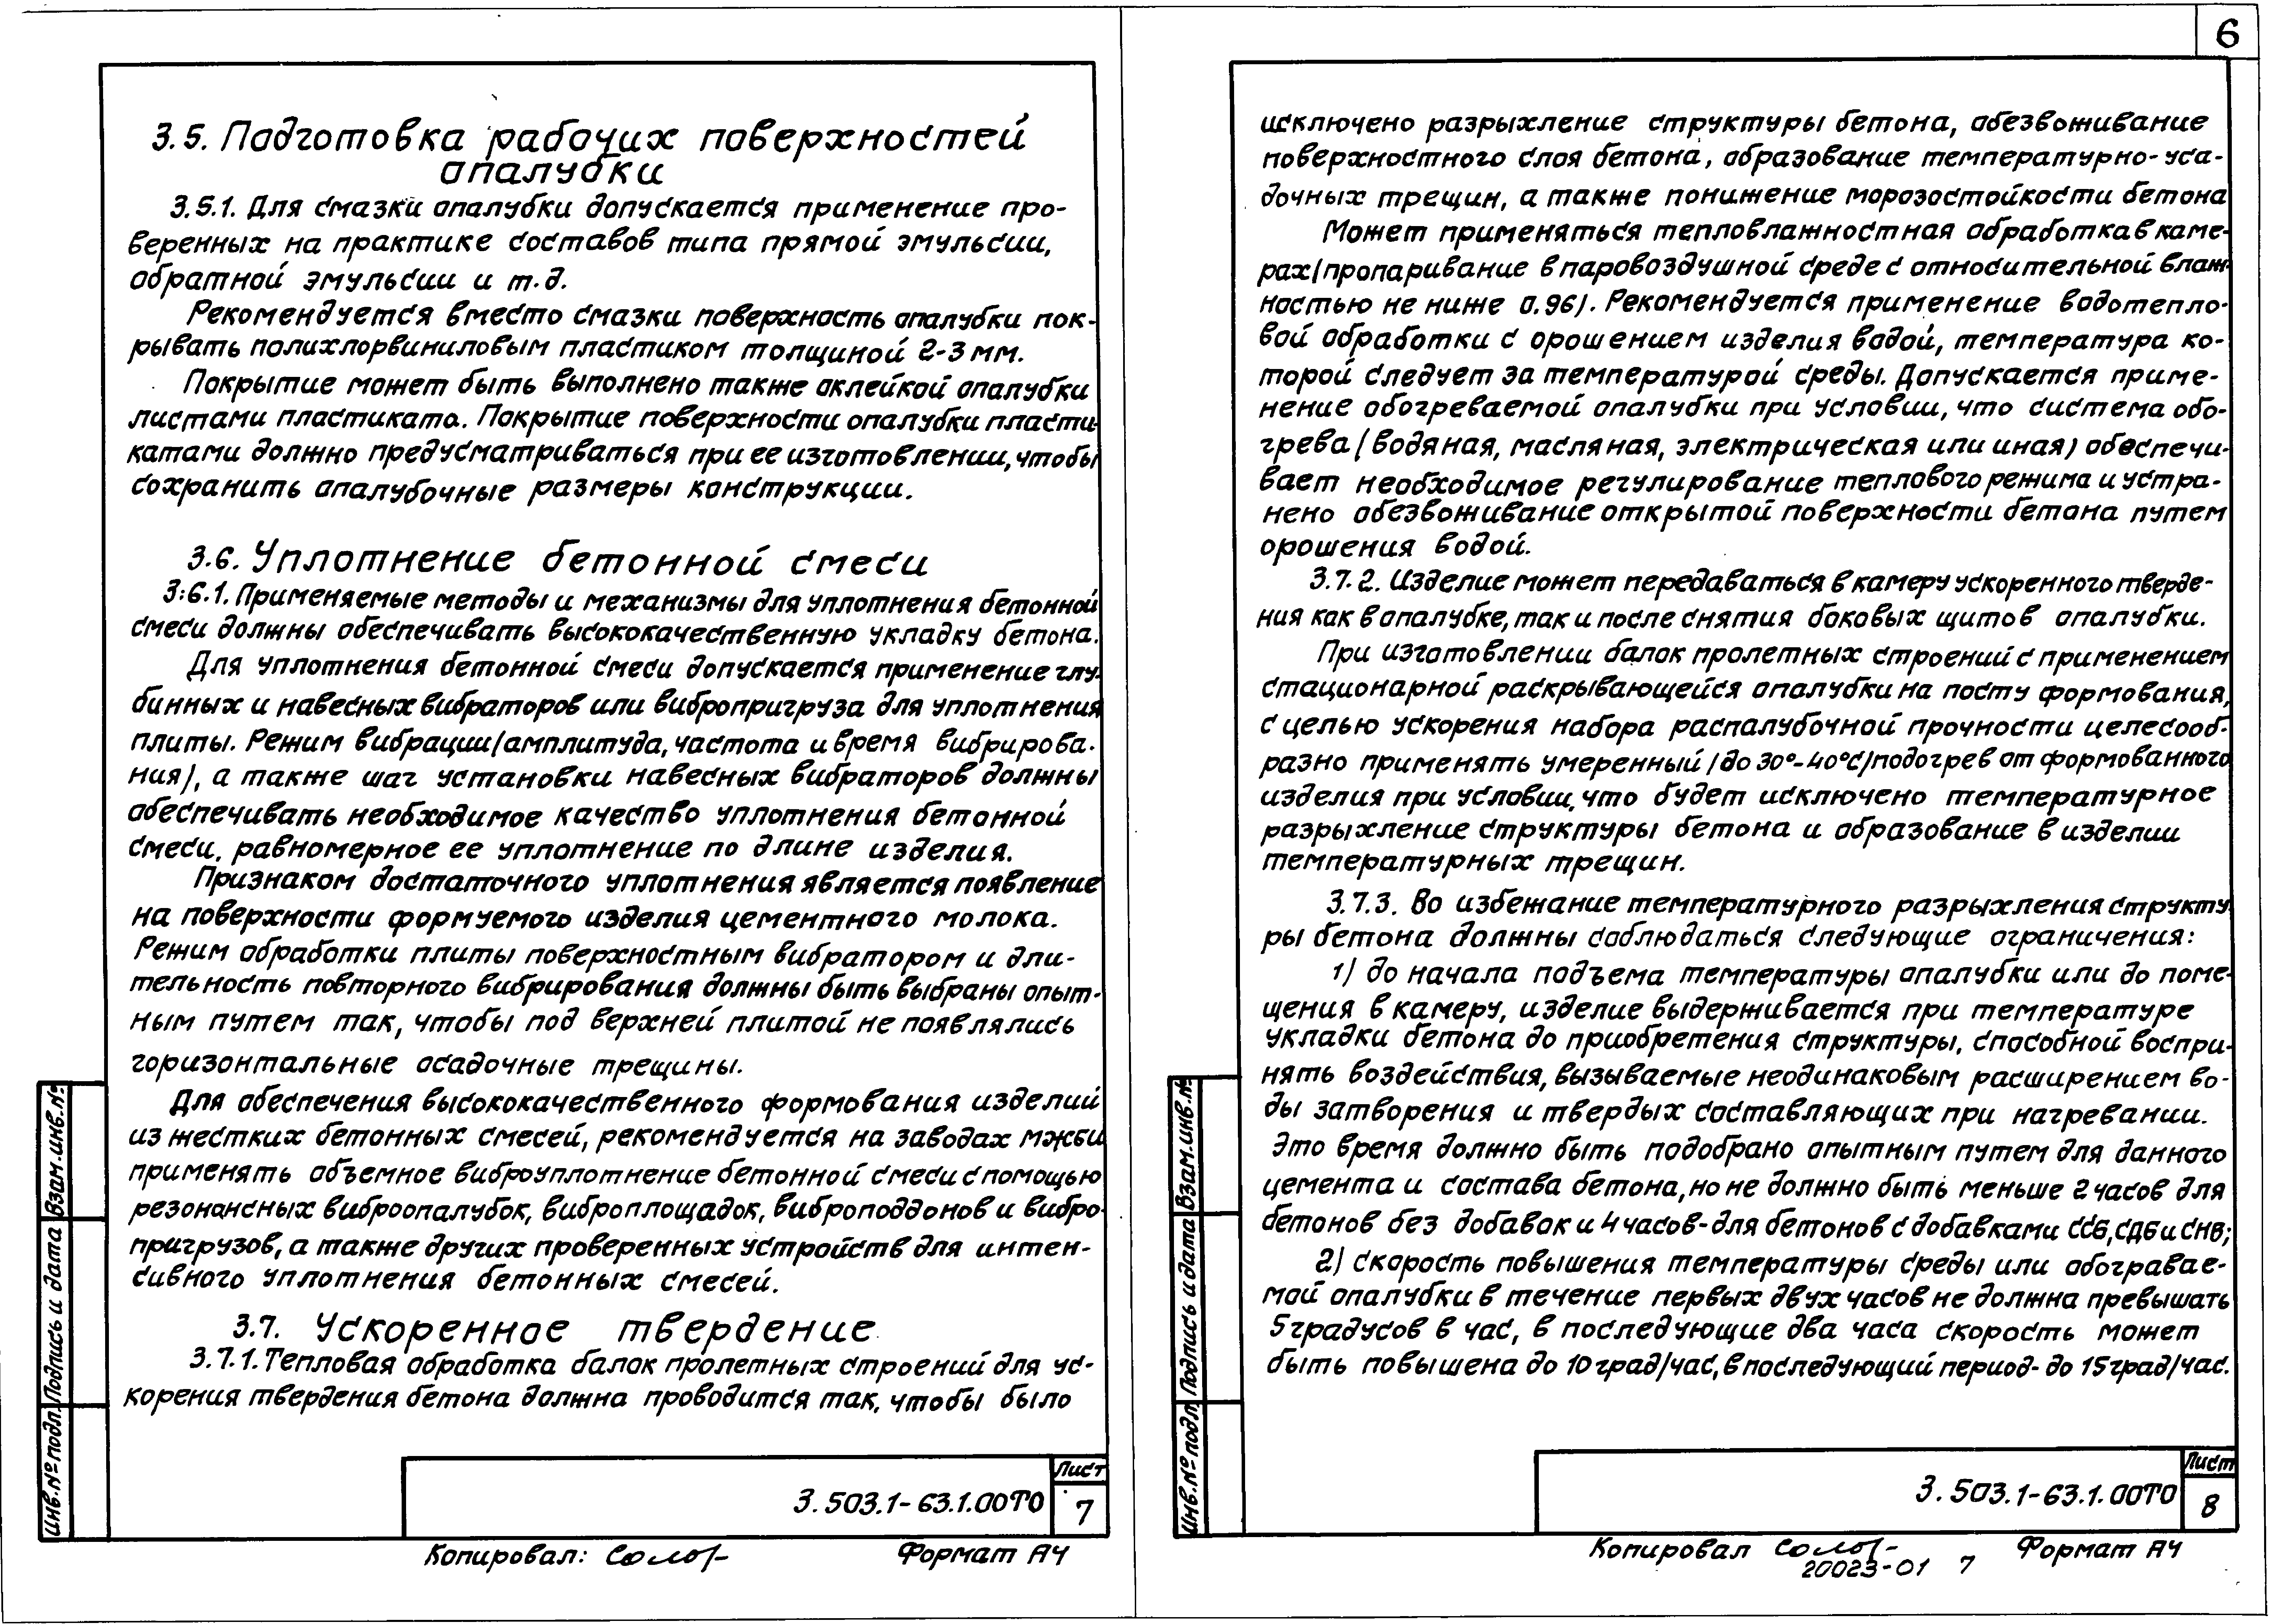 6
3.5. Подготовка рабочих поверхностей
опалубки
3.5.1. Для смазки опалубки допускается применение про-
веренных на практике составов типа прямой эмульсии,
обратной эмульсии и т.д.
Рекомендуется вместо смазки поверхность опалубки пок-
рывать полихлорвиниловым пластиком толщиной 2-3 мм.
Покрытие может быть выполнено также оклейкой опалубки
листами пластиката. Покрытие поверхности опалубки пласти-
катами должно предусматриваться при ее изготовлении, чтобы
сохранить опалубочные размеры конструкции.
3.6. Уплотнение бетонной смеси
3.6.1. Применяемые методы и механизмы для уплотнения бетонной
смеси должны обеспечивать высококачественную укладку бетона.
Для уплотнения бетонной смеси допускается применение глу-
бинных и навесных вибраторов или вибропригруза для уплотнения
плиты. Режим вибрации (амплитуда, частота и время вибрирова-
ния), а также шаг установки навесных вибраторов должны
обеспечивать необходимое качество уплотнения бетонной
смеси, равномерное ее уплотнение по длине изделия.
Признаком достаточного уплотнения является появление
на поверхности формуемого изделия цементного молока.
Режим обработки плиты поверхностным вибратором и дли-
тельность повторного вибрирования должны быть выбраны опыт-
ным путем так, чтобы под верхней плитой не появлялись
горизонтальные осадочные трещины.
Для обеспечения высококачественного формования изделий
из жестких бетонных смесей, рекомендуется на заводах МЖБИ
применять объемное виброуплотнение бетонной смеси с помощью
резонансных виброопалубок, виброплощадок, виброподдонов и вибро-
пригрузов, а также других проверенных устройств для интен-
сивного уплотнения бетонных смесей.
3.7. Ускоренное твердение
3.7.1. Тепловая обработка балок пролетных строений для ус-
корения твердения бетона должна проводится так, чтобы было
Взам.инв.№
Подпись и дата
Инв.№ подл.
3.503.1-63.1.00ТО
Лист
7
Копировал:
Формат А4
исключено разрыхление структуры бетона, обезвоживание
поверхностного слоя бетона, образование температурно-уса-
дочных трещин, а также понижение морозостойкости бетона
Может применяться тепловлажностная обработка в каме-
рах (пропаривание в паровоздушной среде с относительной влаж-
ностью не ниже 0.96). Рекомендуется применение водотепло-
вой обработки с орошением изделия водой, температура ко-
торой следует за температурой среды. Допускается приме-
нение обогреваемой опалубки при условии, что система обо-
грева (водяная, масляная, электрическая или иная) обеспечи-
вает необходимое регулирование теплового режима и устра-
нено обезвоживание открытой поверхности бетона путем
орошения водой.
3.7.2. Изделие может передаваться в камеру ускоренного тверде-
ния как в опалубке, так и после снятия боковых щитов опалубки.
При изготовлении балок пролетных строений с применением
стационарной раскрывающейся опалубки на посту формования,
с целью ускорения набора распалубочной прочности целесооб-
разно применять умеренный (до 30°-40°С) подогрев от формованного
изделия при условии, что будет исключено температурное
разрыхление структуры бетона и образование в изделии
температурных трещин.
3.7.3. Во избежание температурного разрыхления структу-
ры бетона должны соблюдаться следующие ограничения:
1) до начала подъема температуры опалубки или до поме-
щения в камеру, изделие выдерживается при температуре
укладки бетона до приобретения структуры, способной воспри-
нять воздействия, вызываемые неодинаковым расширением во-
ды затворения и твердых составляющих при нагревании.
Это время должно быть подобрано опытным путем для данного
цемента и состава бетона, но не должно быть меньше 2 часов для
бетонов без добавок и 4 часов-для бетонов с добавками ССБ, СДБ и СНВ;
2) скорость повышения температуры среды или обогревае-
мой опалубки в течение первых двух часов не должна превышать
5 градусов в час, в последующие два часа скорость может
быть повышена до 10 град/час, в последующий период- до 15 град/час.
Взам.инв.№
Подпись и дата
Инв.№ подл
3.503.1-63.1.00ТО
Лист
8
Копировал
Формат А4
20023-01 7